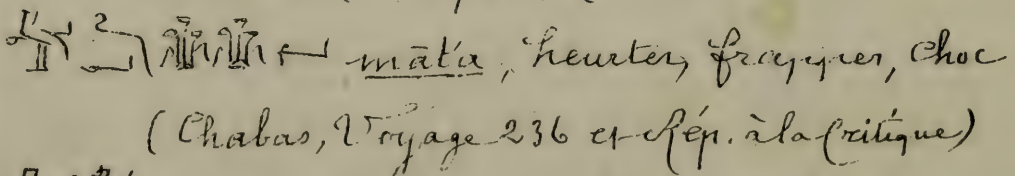 mātia, heurter, frapper, choc
(Chabas, Voyage 236 et Rép. à la Critique)